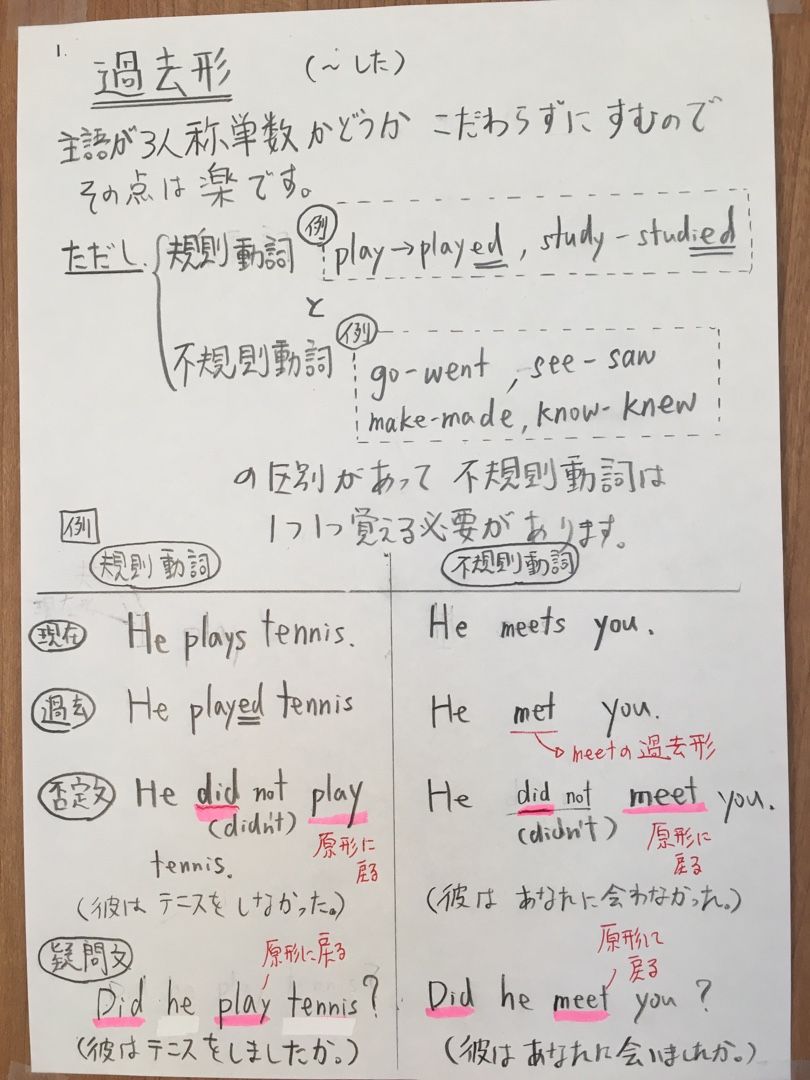 1.
過去形 (~した)
主語が3人称単数かどうか こだわらずにすむので
その点は楽です。
ただし、 規則動詞 例 play→played, study-studied
と
不規則動詞 例 go-went, see-saw
make-made, know-knew
の区別があって 不規則動詞は
1つ1つ覚える必要があります。
例
規則動詞 不規則動詞
現在 He plays tennis. He meets you.
過去 He played tennis He met you.
meetの過去形
否定文 He did not play He did not meet you.
(didn't) 原形に戻る (didn't) 原形に戻る
tennis.
(彼はテニスをしなかった。) (彼はあなたに会わなかった。)
疑問文 原形に戻る 原形に戻る
Did he play tennis? Did he meet you?
(彼はテニスをしましたか。) (彼はあなたに会いましたか。)